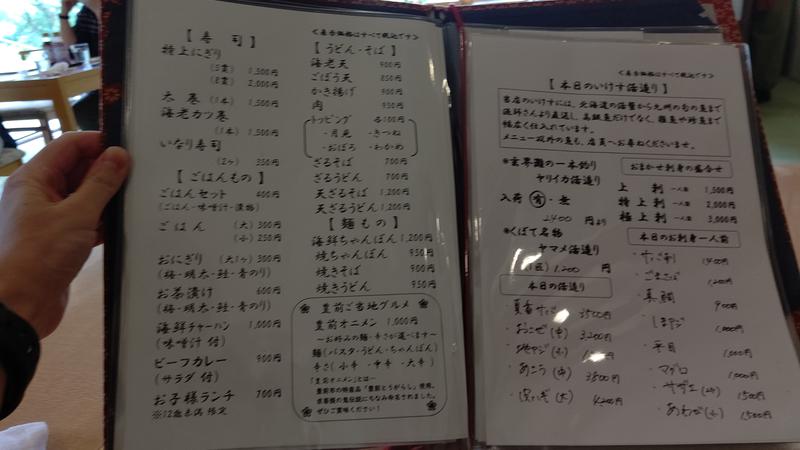 【寿 司】
特上にぎり
(5貫) 1,500円
(8貫) 2,000円
太巻(1本) 1,500円
海老カツ巻
(1本) 1,500円
いなり寿司
(2ヶ) 350円
【ごはんもの】
ごはんセット 400円
(ごはん・味噌汁・漬物)
ごはん (大) 300円
(小) 250円
おにぎり (大1ヶ) 300円
(梅・明太・鮭・青のり)
お茶漬け 600円
(梅・明太・鮭・青のり)
海鮮チャーハン 1,000円
(味噌汁 付)
ビーフカレー 900円
(サラダ 付)
お子様ランチ 700円
※12歳未満 限定
<表示価格はすべて税込です>
【うどん・そば】
海老天 900円
ごぼう天 850円
かき揚げ 900円
肉 950円
トッピング 各100円
・月見 ・きつね
・おぼろ ・わかめ
ざるそば 700円
ざるうどん 700円
天ざるそば 1,200円
天ざるうどん 1,200円
【麺もの】
海鮮ちゃんぽん 1,200円
焼ちゃんぽん 950円
焼きそば 900円
焼きうどん 950円
豊前ご当地グルメ
豊前オニメン 1,000円
～お好みの麺・辛さが選べます～
麺(パスタ・うどん・ちゃんぽん)
辛さ(小辛・中辛・大辛)
「豊前オニメン」とは…
豊前市の特産品「豊前とうがらし」使用。
求菩提の鬼伝説にちなみ命名されました。
ぜひご賞味ください!
<表示価格はすべて税込です>
【本日のいけす活造り】
当店のいけすには、北海道の活蟹から九州の旬の魚まで
漁師さんより直送し、高級魚だけでなく、雑魚や珍魚まで
幅広く仕入れています。
メニュー以外の魚も、店員へお尋ねくださいませ。
*玄界灘の一本釣り
ヤリイカ活造り
入荷 有・無
2400 円より
*くぼて名物
ヤマメ活造り
(1匹) 1,200 円
本日の活造り
3500円
おこぜ(中) 3,200円
地アジ(小)
あこう(中) 3800円
(大) 4,200円
おまかせ刺身の盛合せ
上 刺 一人盛 1,500円
特上刺 一人盛 2,000円
極上刺 一人盛 3,000円
本日のお刺身一人前
1400円
・ごまさば 1,200円
・真鯛 900円
・しまアジ 1,000円
・平目 1,000円
・マグロ 1,000円
・サザエ 1500円
・あわび(小) 1500円